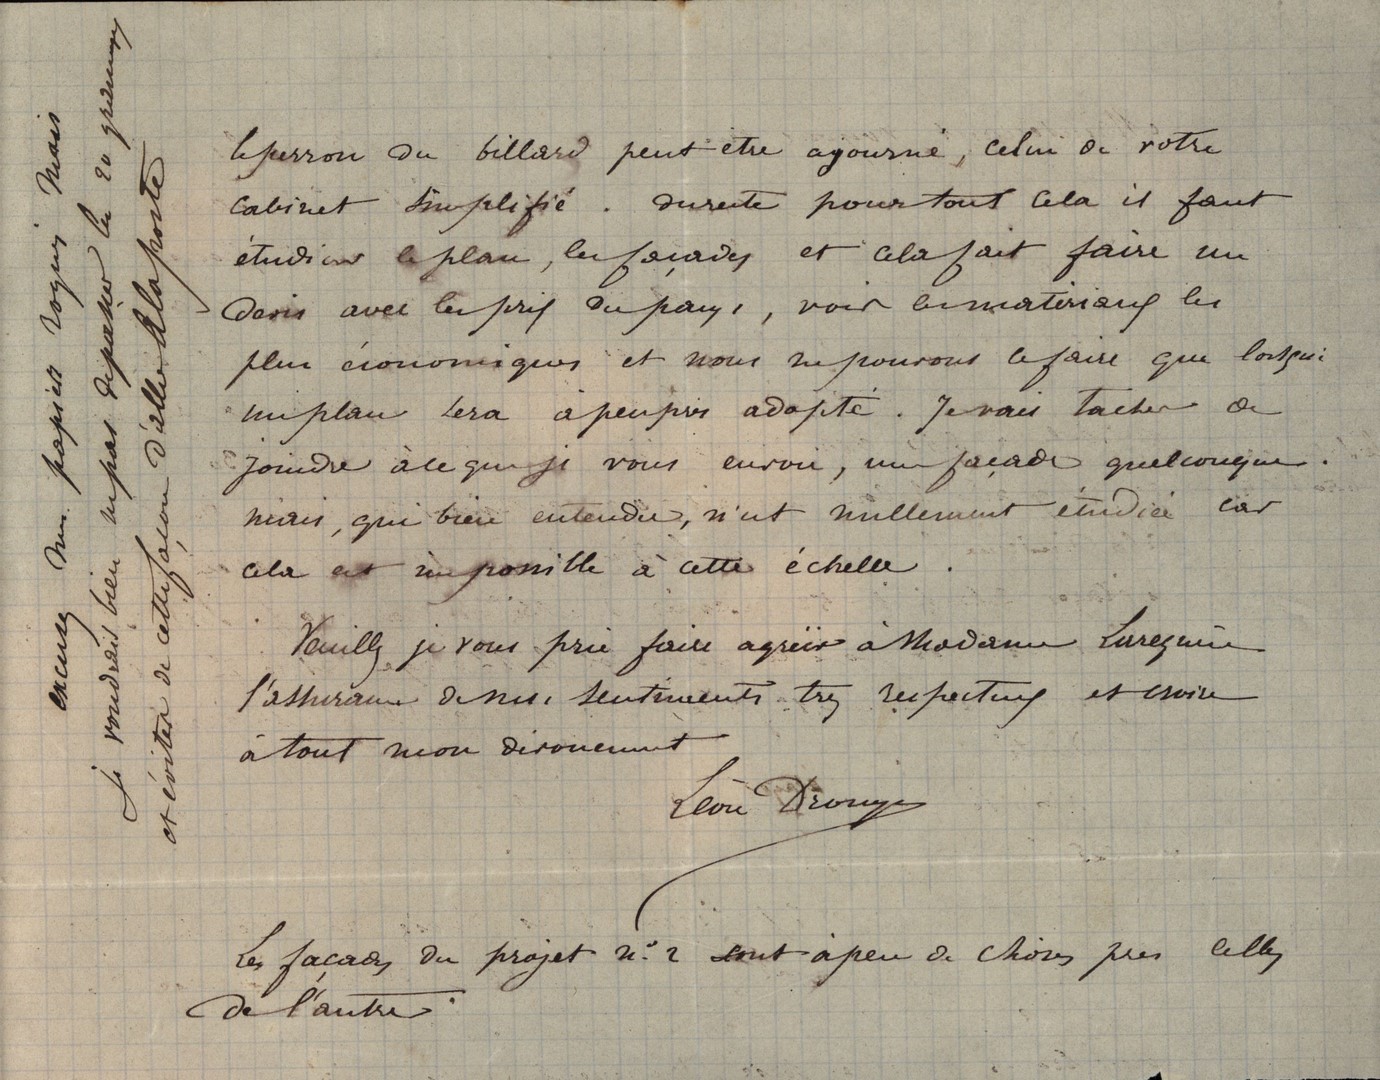 le perron du billard peut être ajourné, celui de votre
cabinet simplifié. du reste pour tout cela il faut
étudier le plan, les façades et cela fait faire un
devis avec les prix du pays, voir les matériaux les
plus économiques et nous ne pouvons le faire que lorsqu'
un plan sera à peu près adopté. Je vais tacher de
joindre à ce que je vous envoie, une façade quelconque.
mais, qui bien entendu, n'est nullement étudiée car
cela est impossible à cette échelle.
Veuillez je vous prie faire agréer à Madame
l'assurance de mes sentiments très respectueux et croire
à tout mon dévouement
Léon Drouyn
Les façades du projet n.° 2 sont à peu de choses près celles
de l'autre.
excusez mon papier mais
Je voudrais bien ne pas dépasser les 20 grammes
et éviter de cette façon d'aller à la poste